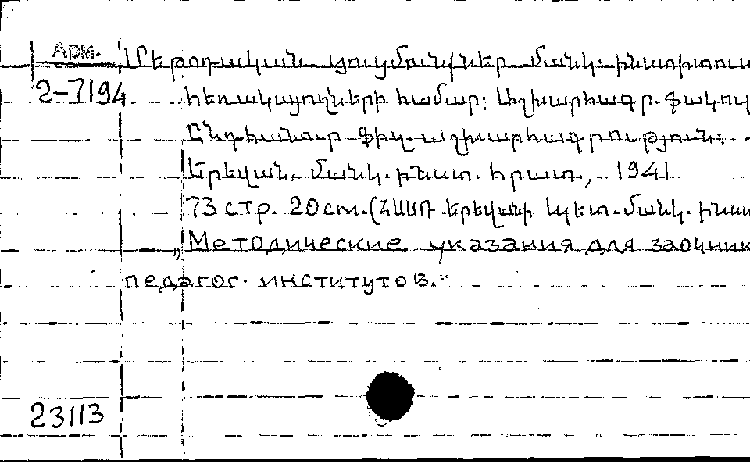 Арм.
2-7194
Մեթոդական ցուցմունքներ մանկ. ինստիտուտ
հեռակայողների համար: Աշխարհագր. ֆակուլ
Ընդհանուր ֆիզ. աշխարհագրություն.
Երեվան. մանկ. ինստ. հրատ., 1941
73 стр. 20 cm. (ՀՍՍՌ Երեվանի պետ. մանկ. ինստ
„Методические указания для заочник
педагог. институтов."
23113